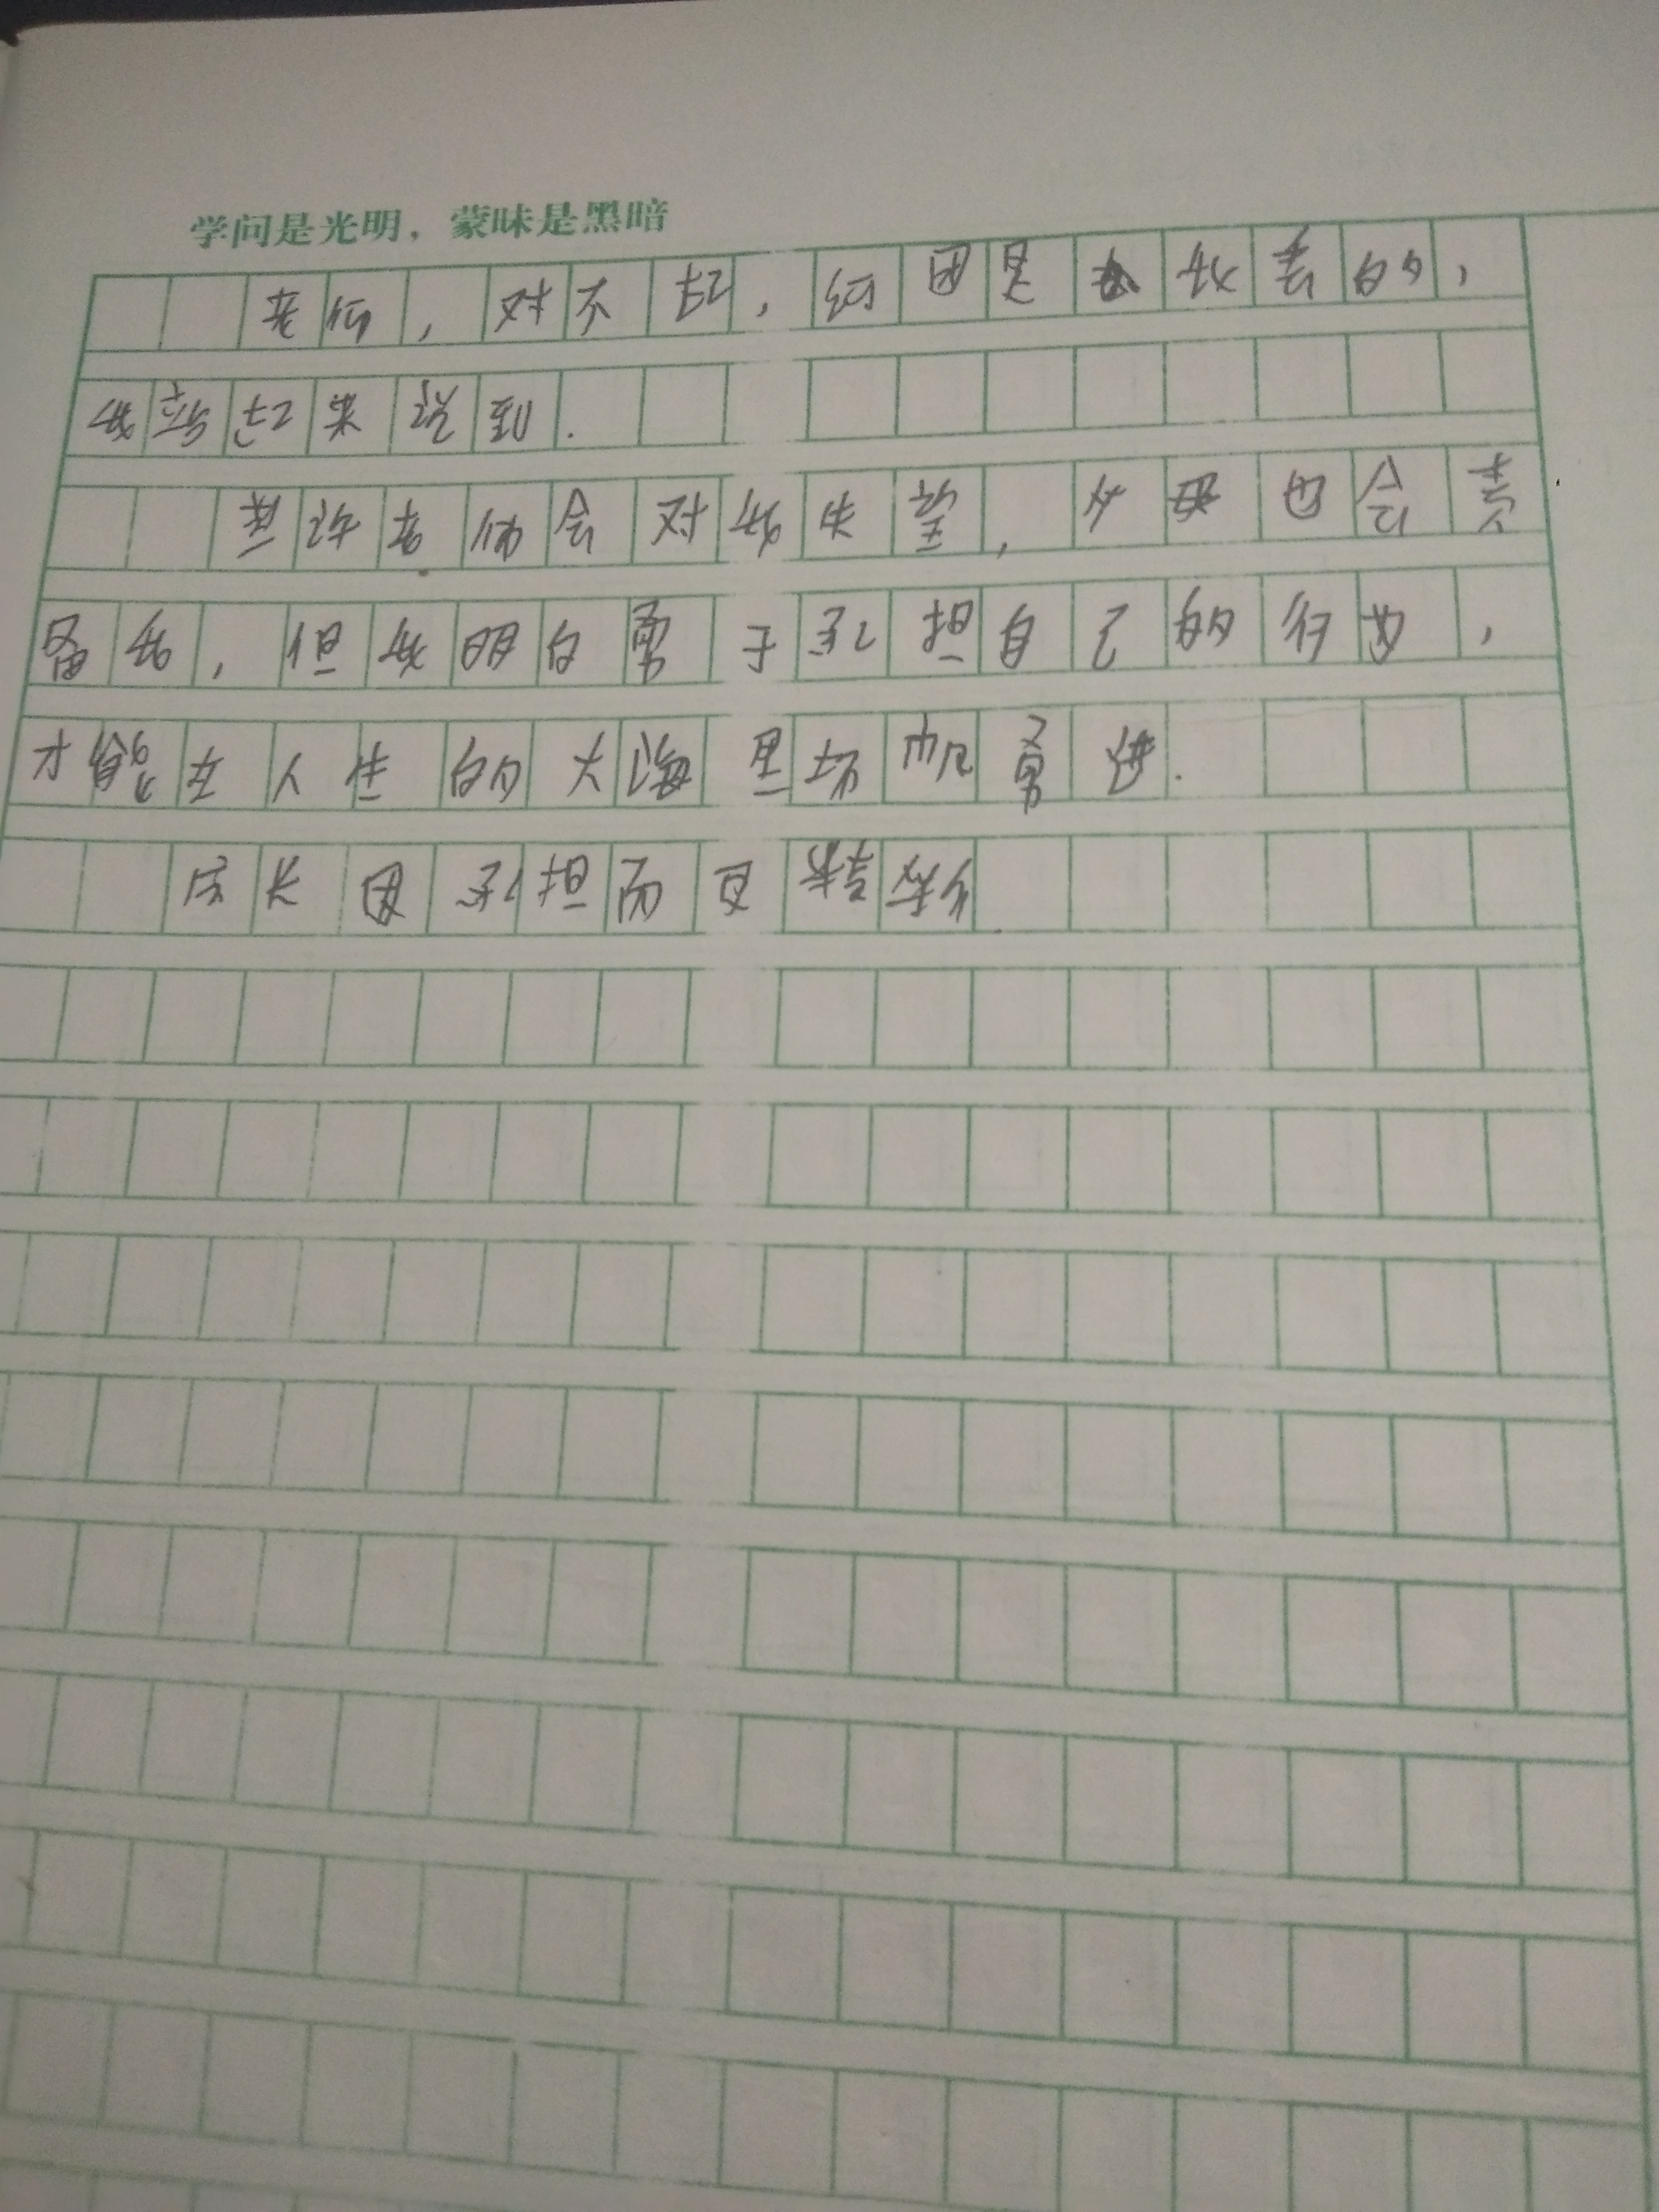 学问是光明，蒙昧是黑暗
老师，对不起，纸团是由我丢的，
我站起来说到.
或许老师会对我失望，父母会责
备我，但我明白勇于承担自己的行为，
才能在人生的大海里扬帆勇进.
成长因承担而更精彩